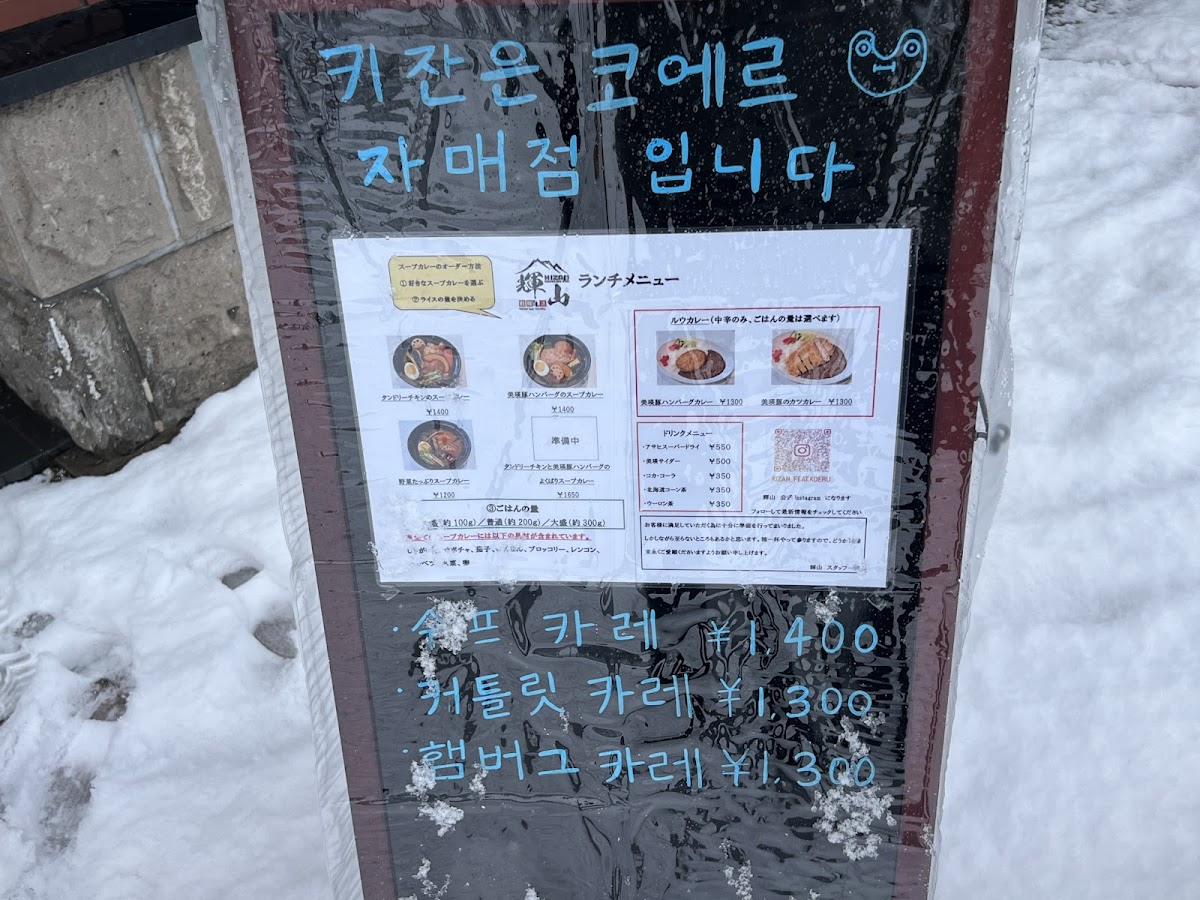 키잔은 코에르
자매점 입니다
スープカレーのオーダー方法
①好きなスープカレーを選ぶ
②ライスの量を決める
KIZAN
輝山
ランチメニュー
タンドリーチキンのスー カレー
¥1400
美瑛豚ハンバーグのスープカレー
¥1400
野菜たっぷりスープカレー
¥1200
準備中
タンドリーチキンと美瑛豚ハンバーグの
よくばりスープカレー
¥1650
③ごはんの量
盛(約100g)／普通(約200g)／大盛(約300g)
スープカレーには以下の具材が含まれています。
ボチャ、茄子、 ブロッコリー、レンコン、
ルウカレー(中辛のみ、ごはんの量は選べます)
美瑛豚ハンバーグカレー ¥1300
美瑛豚のカツカレー ¥1300
ドリンクメニュー
・アサヒスーパードライ ¥550
・美瑛サイダー ¥500
・コカ・コーラ ¥350
・北海道コーン茶 ¥350
・ウーロン茶 ¥350
KIZAN_FEAT.KOERU
輝山 公式 Instagram になります
フォローして最新情報をチェックしてください
お客様に満足していただく為に十分に準備を行ってまいりました。
しかしながら至らないところもあるかと思います。精一杯やって参りますので、どうか
末永くご愛顧くださいますようお願い申し上げます。
輝山 スタッフ一同
・수프 카레 ¥1,400
・커틀릿 카레 ¥1,300
・햄버그 카레 ¥1,300